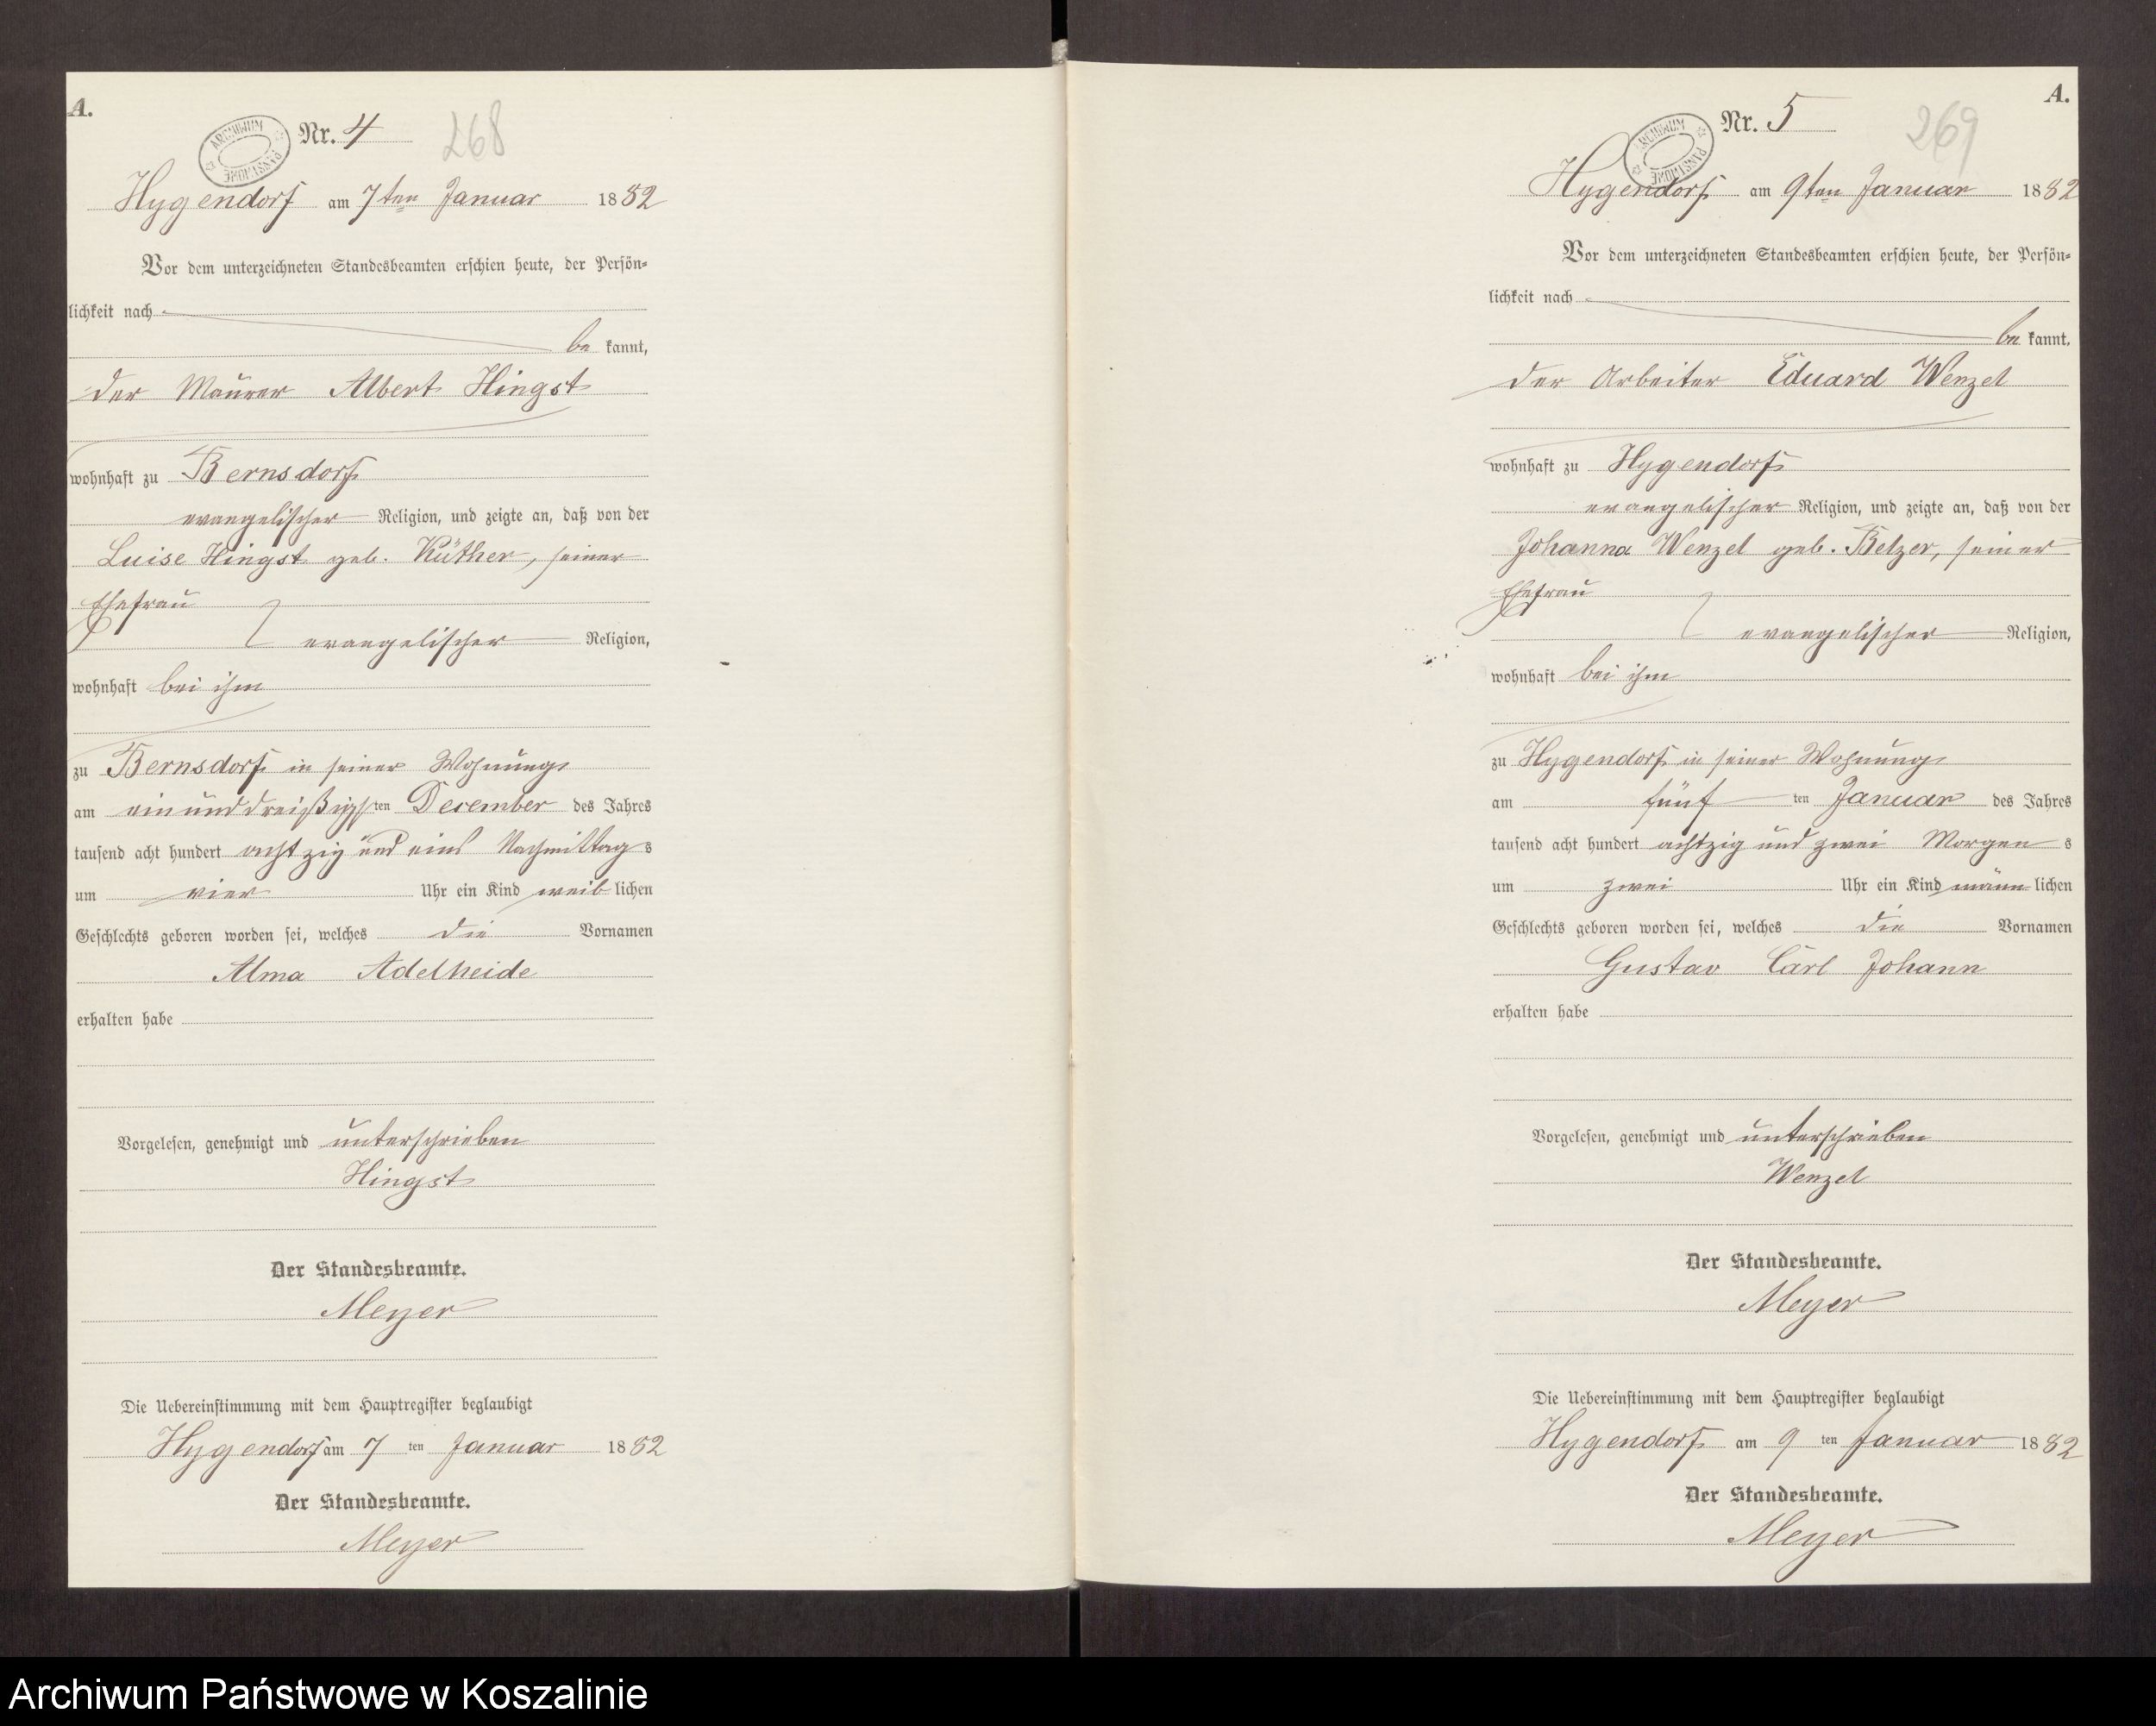 A.
ARCHIWUM PAŃSTWOWE
Nr. 4
268
Hygendorf am 7ten Januar 1882
Vor dem unterzeichneten Standesbeamten erschien heute, der Persön=
lichkeit nach
be kannt,
der Maurer Albert Hingst
wohnhaft zu Bernsdorf
evangelischer Religion, und zeigte an, daß von der
Luise Hingst geb. Küther, seiner
Ehefrau
evangelischer Religion,
wohnhaft bei ihm
zu Bernsdorf in seiner Wohnung
am ein und dreißigsten December des Jahres
tausend acht hundert achtzig und eins Nachmittags
um vier Uhr ein Kind weiblichen
Geschlechts geboren worden sei, welches die Vornamen
Alma Adelheide
erhalten habe
Vorgelesen, genehmigt und unterschrieben
Hingst
Der Standesbeamte.
Meyer
Die Uebereinstimmung mit dem Hauptregister beglaubigt
Hygendorf am 7 ten Januar 1882
Der Standesbeamte.
Meyer
A.
ARCHIWUM PAŃSTWOWE
Nr. 5
269
Hygendorf am 9ten Januar 1882
Vor dem unterzeichneten Standesbeamten erschien heute, der Persön=
lichkeit nach
be kannt,
der Arbeiter Eduard Wenzel
wohnhaft zu Hygendorf
evangelischer Religion, und zeigte an, daß von der
Johanna Wenzel geb. Belzer, seiner
Ehefrau
evangelischer Religion,
wohnhaft bei ihm
zu Hygendorf in seiner Wohnung
am fünf ten Januar des Jahres
tausend acht hundert achtzig und zwei Morgens
um zwei Uhr ein Kind männlichen
Geschlechts geboren worden sei, welches die Vornamen
Gustav Carl Johann
erhalten habe
Vorgelesen, genehmigt und unterschrieben
Wenzel
Der Standesbeamte.
Meyer
Die Uebereinstimmung mit dem Hauptregister beglaubigt
Hygendorf am 9 ten Januar 1882
Der Standesbeamte.
Meyer
Archiwum Państwowe w Koszalinie